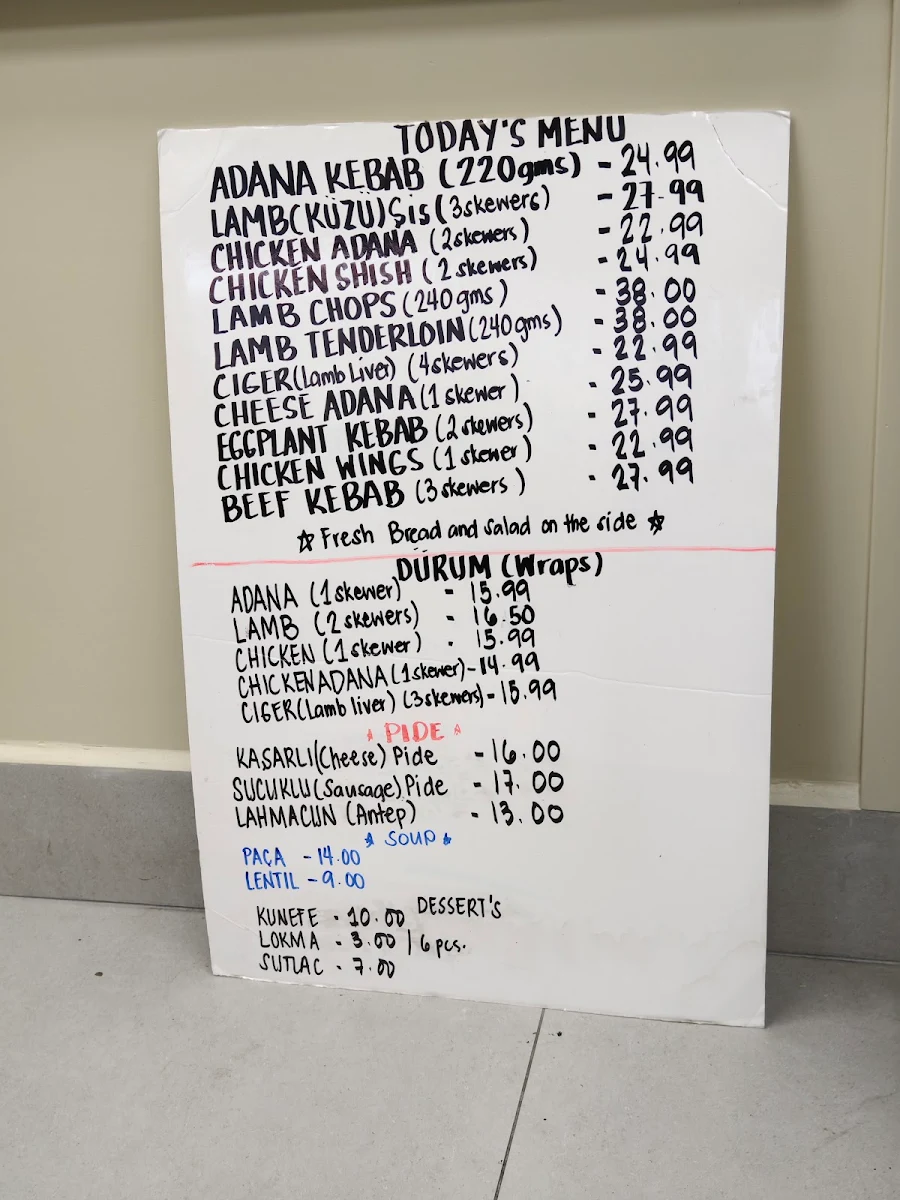 TODAY'S MENU
ADANA KEBAB (220gms) - 24.99
LAMB(KÜZU)Şis(3skewers) - 27.99
CHICKEN ADANA (2skewers) - 22.99
CHICKEN SHISH (2 skewers) - 24.99
LAMB CHOPS (240 gms) - 38.00
LAMB TENDERLOIN (240gms) - 38.00
CIGER(Lamb Liver) (4skewers) - 22.99
CHEESE ADANA (1 skewer) - 25.99
EGGPLANT KEBAB (2 skewers) - 27.99
CHICKEN WINGS (1 skewer) - 22.99
BEEF KEBAB (3 skewers) - 27.99
☆ Fresh Bread and salad on the side ☆
DÜRUM (Wraps)
ADANA (1 skewer) - 15.99
LAMB (2 skewers) - 16.50
CHICKEN (1 skewer) - 15.99
CHICKEN ADANA (1 skewer) - 14.99
CIGER(Lamb liver) (3 skewers) - 15.99
PIDE
KAŞARLI(Cheese) Pide - 16.00
SUCUKLU(Sausage) Pide - 17.00
LAHMACUN (Antep) - 13.00
SOUP
PAÇA - 14.00
LENTIL - 9.00
DESSERT'S
KUNEFE - 10.00
LOKMA - 3.00 | 6 pcs.
SUTLAC - 7.00